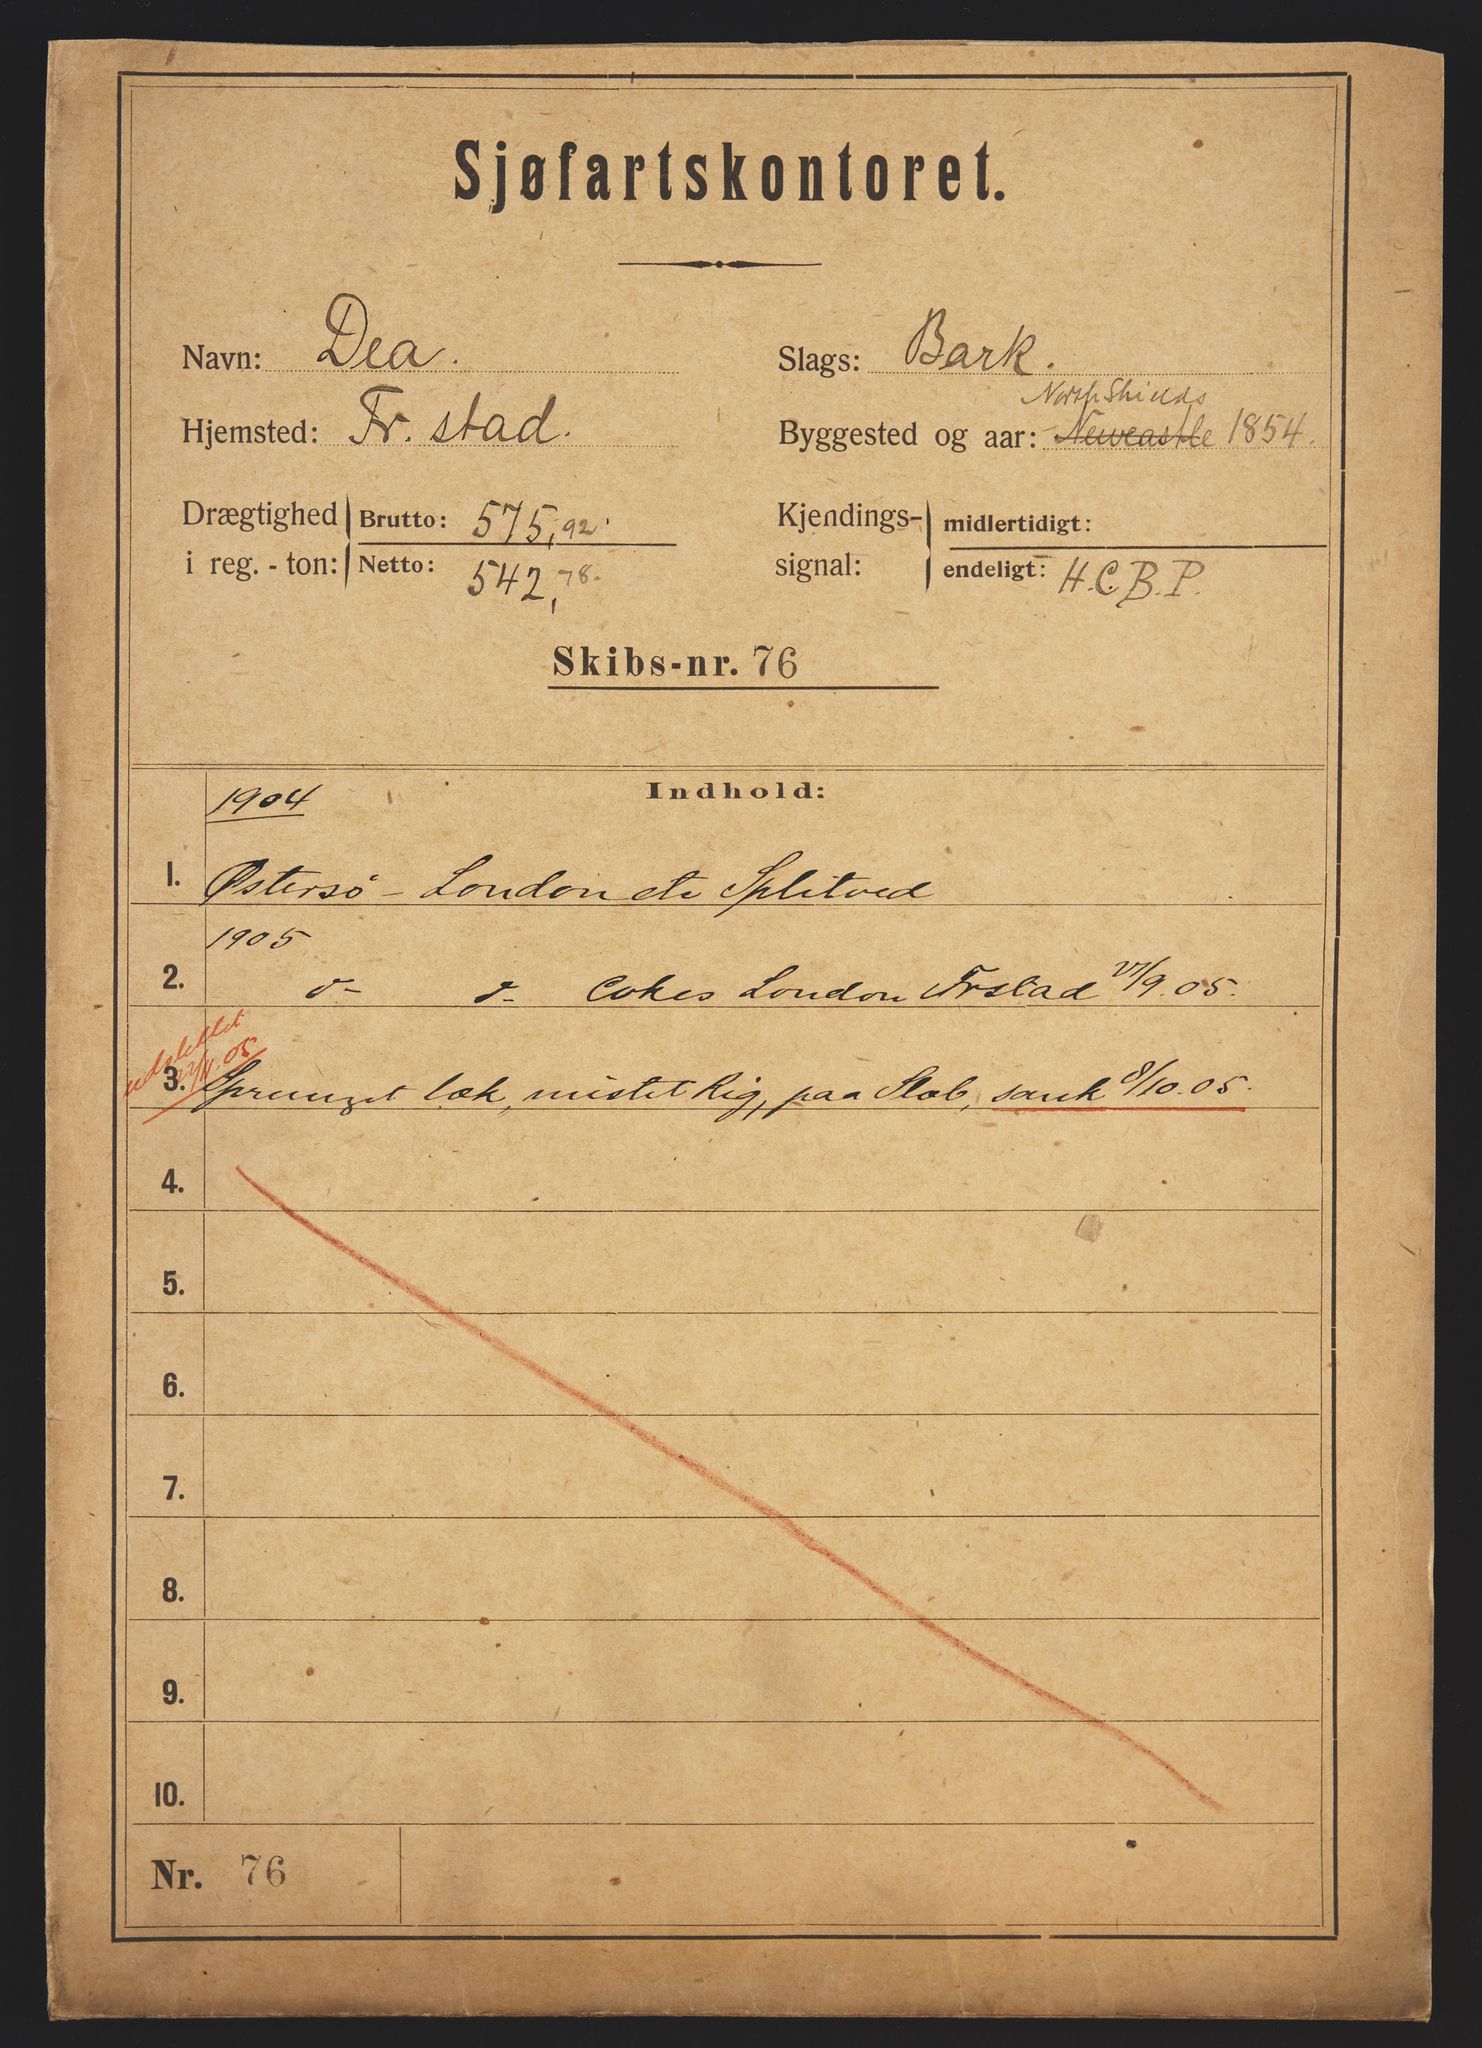 Sjøfartskontoret.
Navn: Dea. Slags: Bark.
North Shields
Hjemsted: Fr. stad. Byggested og aar: Newcastle 1854.
Drægtighed Brutto: 575,92. Kjendings- midlertidigt:
i reg. - ton: Netto: 542,78. signal: endeligt: H.C.B.P.
Skibs-nr. 76
1904 Indhold:
1. Østersø - London etc Splitved
1905
2. do do Cokes London Frstad 27/9.05.
udslettet
/11.05
3. Sprunget læk, mistet Rig, paa Slæb, sank 8/10.05.
4.
5.
6.
7.
8.
9.
10.
Nr. 76